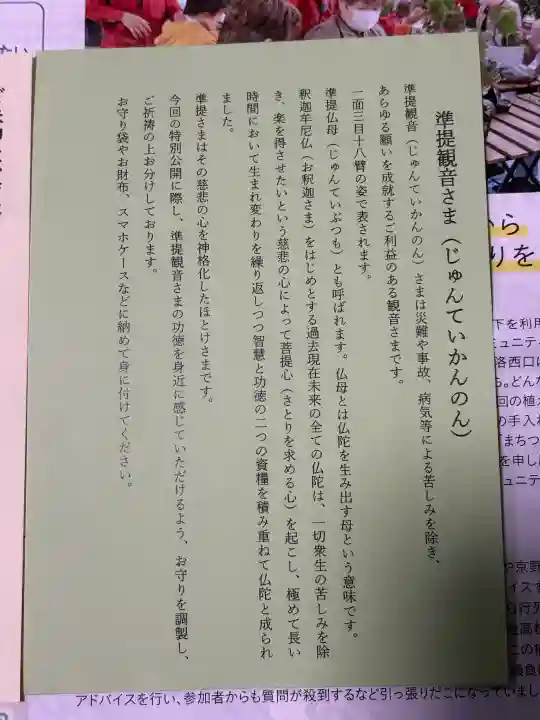 準提観音さま（じゅんていかんのん）
準提観音（じゅんていかんのん）さまは災難や事故、病気等による苦しみを除き、
あらゆる願いを成就するご利益のある観音さまです。
一面三目十八臂の姿で表されます。
準提仏母（じゅんていぶつも）とも呼ばれます。仏母とは仏陀を生み出す母という意味です。
釈迦牟尼仏（お釈迦さま）をはじめとする過去現在未来の全ての仏陀は、一切衆生の苦しみを除
き、楽を得させたいという慈悲の心によって菩提心（さとりを求める心）を起こし、極めて長い
時間において生まれ変わりを繰り返しつつ智慧と功徳の二つの資糧を積み重ねて仏陀と成られ
ました。
準提さまはその慈悲の心を神格化したほとけさまです。
今回の特別公開に際し、準提観音さまの功徳を身近に感じていただけるよう、お守りを調製し、
ご祈祷の上お分けしております。
お守り袋やお財布、スマホケースなどに納めて身に付けてください。
から
りを
下を利用
ミュニティ
洛西口
ら。どんな
回の植
の手入れ
「まちつ
を申し
ミュニティ
アドバイスを行い、参加者からも質問が殺到するなど引っ張りだこになっていまし